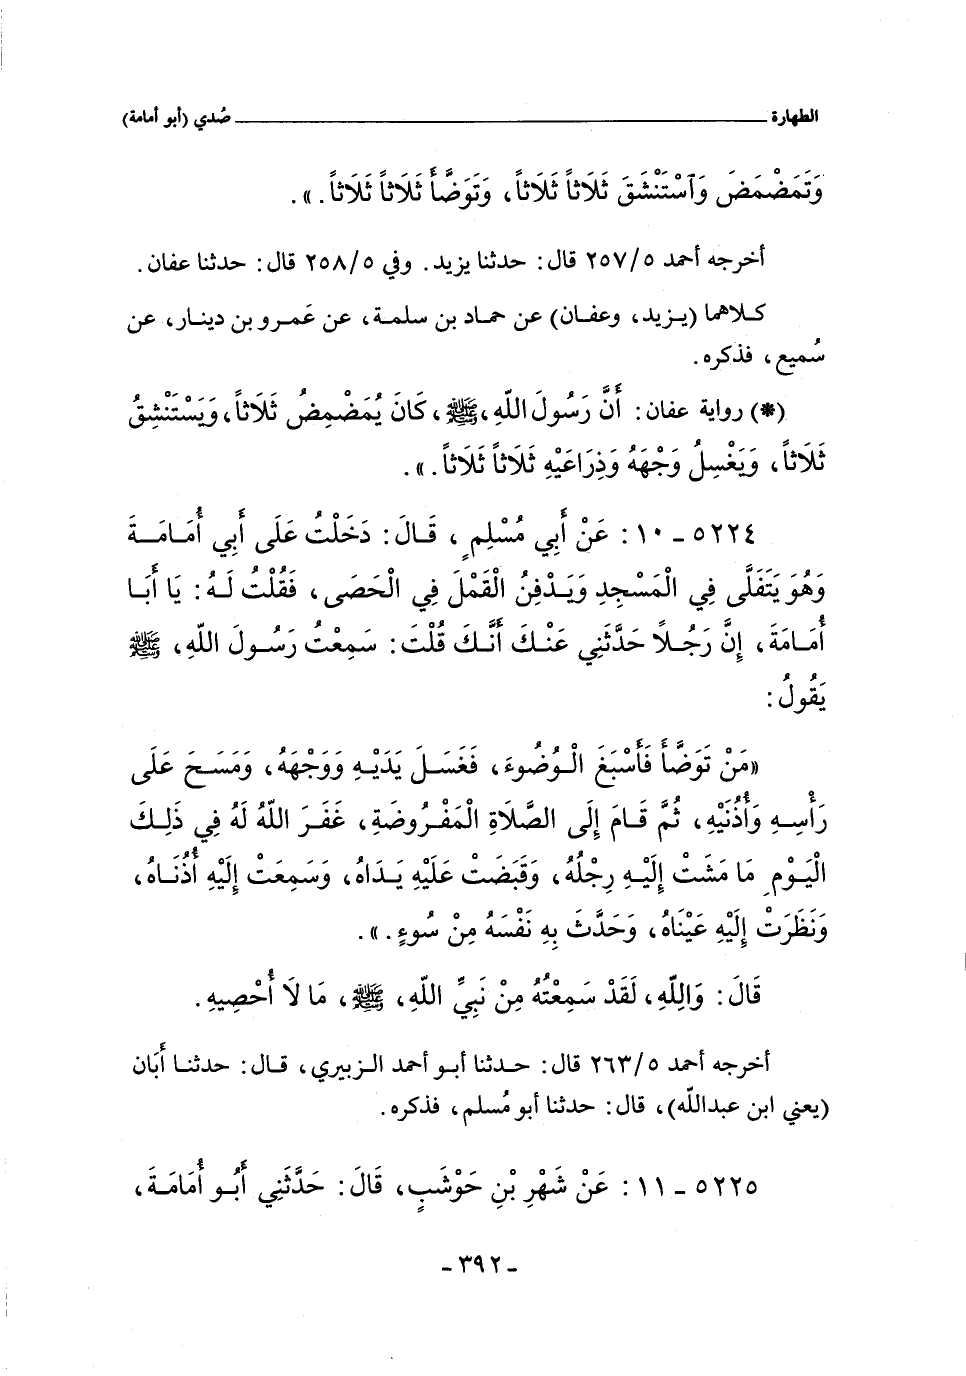 الطهارة ــــــــــــــــــــ صُدي (أبو أمامة)
وَتَمَضْمَضَ وَآسْتَنْشَقَ ثَلَاثاً ثَلَاثاً، وَتَوَضَّأَ ثَلَاثاً ثَلَاثاً.».
أخرجه أحمد ٢٥٧/٥ قال: حدثنا يزيد. وفي ٢٥٨/٥ قال: حدثنا عفان.
كلاهما (يزيد، وعفان) عن حماد بن سلمة، عن عَمرو بن دينار، عن
سُميع، فذكره.
(*) رواية عفان: أَنَّ رَسُولَ اللّهِ، ﷺ، كَانَ يُمَضْمِضُ ثَلَاثاً، وَيَسْتَنْشِقُ
ثَلَاثاً، وَيَغْسِلُ وَجْهَهُ وَذِرَاعَيْهِ ثَلَاثاً ثَلَاثاً.».
٥٢٢٤ ـ ١٠: عَنْ أَبِي مُسْلِمٍ، قَالَ: دَخَلْتُ عَلَى أَبِي أُمَامَةَ
وَهُوَ يَتَفَلَّى فِي الْمَسْجِدِ وَيَدْفِنُ الْقَمْلَ فِي الْحَصَى، فَقُلْتُ لَهُ: يَا أَبَا
أُمَامَةَ، إِنَّ رَجُلاً حَدَّثَنِي عَنْكَ أَنَّكَ قُلْتَ: سَمِعْتُ رَسُولَ اللّهِ، ﷺ
يَقُولُ:
«مَنْ تَوَضَّأَ فَأَسْبَغَ الْوُضُوءَ، فَغَسَلَ يَدَيْهِ وَوَجْهَهُ، وَمَسَحَ عَلَى
رَأْسِهِ وَأُذُنَيْهِ، ثُمَّ قَامَ إِلَى الصَّلَاةِ الْمَفْرُوضَةِ، غَفَرَ اللّهُ لَهُ فِي ذَلِكَ
الْيَوْمِ مَا مَشَتْ إِلَيْهِ رِجْلُهُ، وَقَبَضَتْ عَلَيْهِ يَدَاهُ، وَسَمِعَتْ إِلَيْهِ أُذُنَاهُ،
وَنَظَرَتْ إِلَيْهِ عَيْنَاهُ، وَحَدَّثَ بِهِ نَفْسَهُ مِنْ سُوءٍ.».
قَالَ: وَاللّهِ، لَقَدْ سَمِعْتُهُ مِنْ نَبِيِّ اللّهِ، ﷺ، مَا لَا أُحْصِيهِ.
أخرجه أحمد ٢٦٣/٥ قال: حدثنا أبو أحمد الزبيري، قال: حدثنا أَبَان
(يعني ابن عبداللّه)، قال: حدثنا أبو مُسلم، فذكره.
٥٢٢٥ ـ ١١: عَنْ شَهْرِ بْنِ حَوْشَبٍ، قَالَ: حَدَّثَنِي أَبُو أُمَامَةَ،
ـ ٣٩٢ ـ